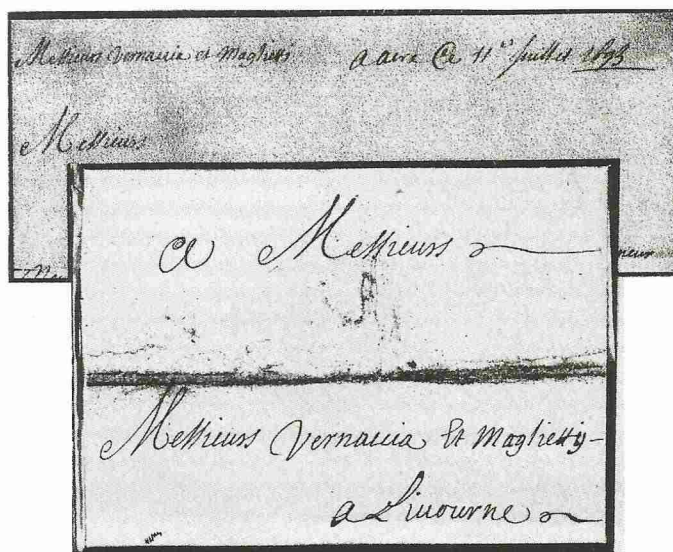 Messieurs Vernaccia et Maglietti a aera Ce 11e Juillet 1693
Messieurs
neur
A Messieurs
Messieurs Vernaccia Et Magliettij
a Liuourne